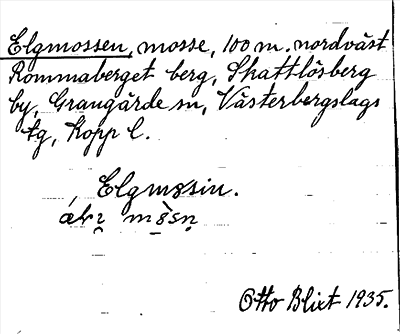 Elgmossen, mosse, 100 m. nordväst
Rommaberget berg, Skattlösberg
by, Grangärde sn, Västerbergslags
tg, Kopp l.
Elgmossin.
Otto Blixt 1935.